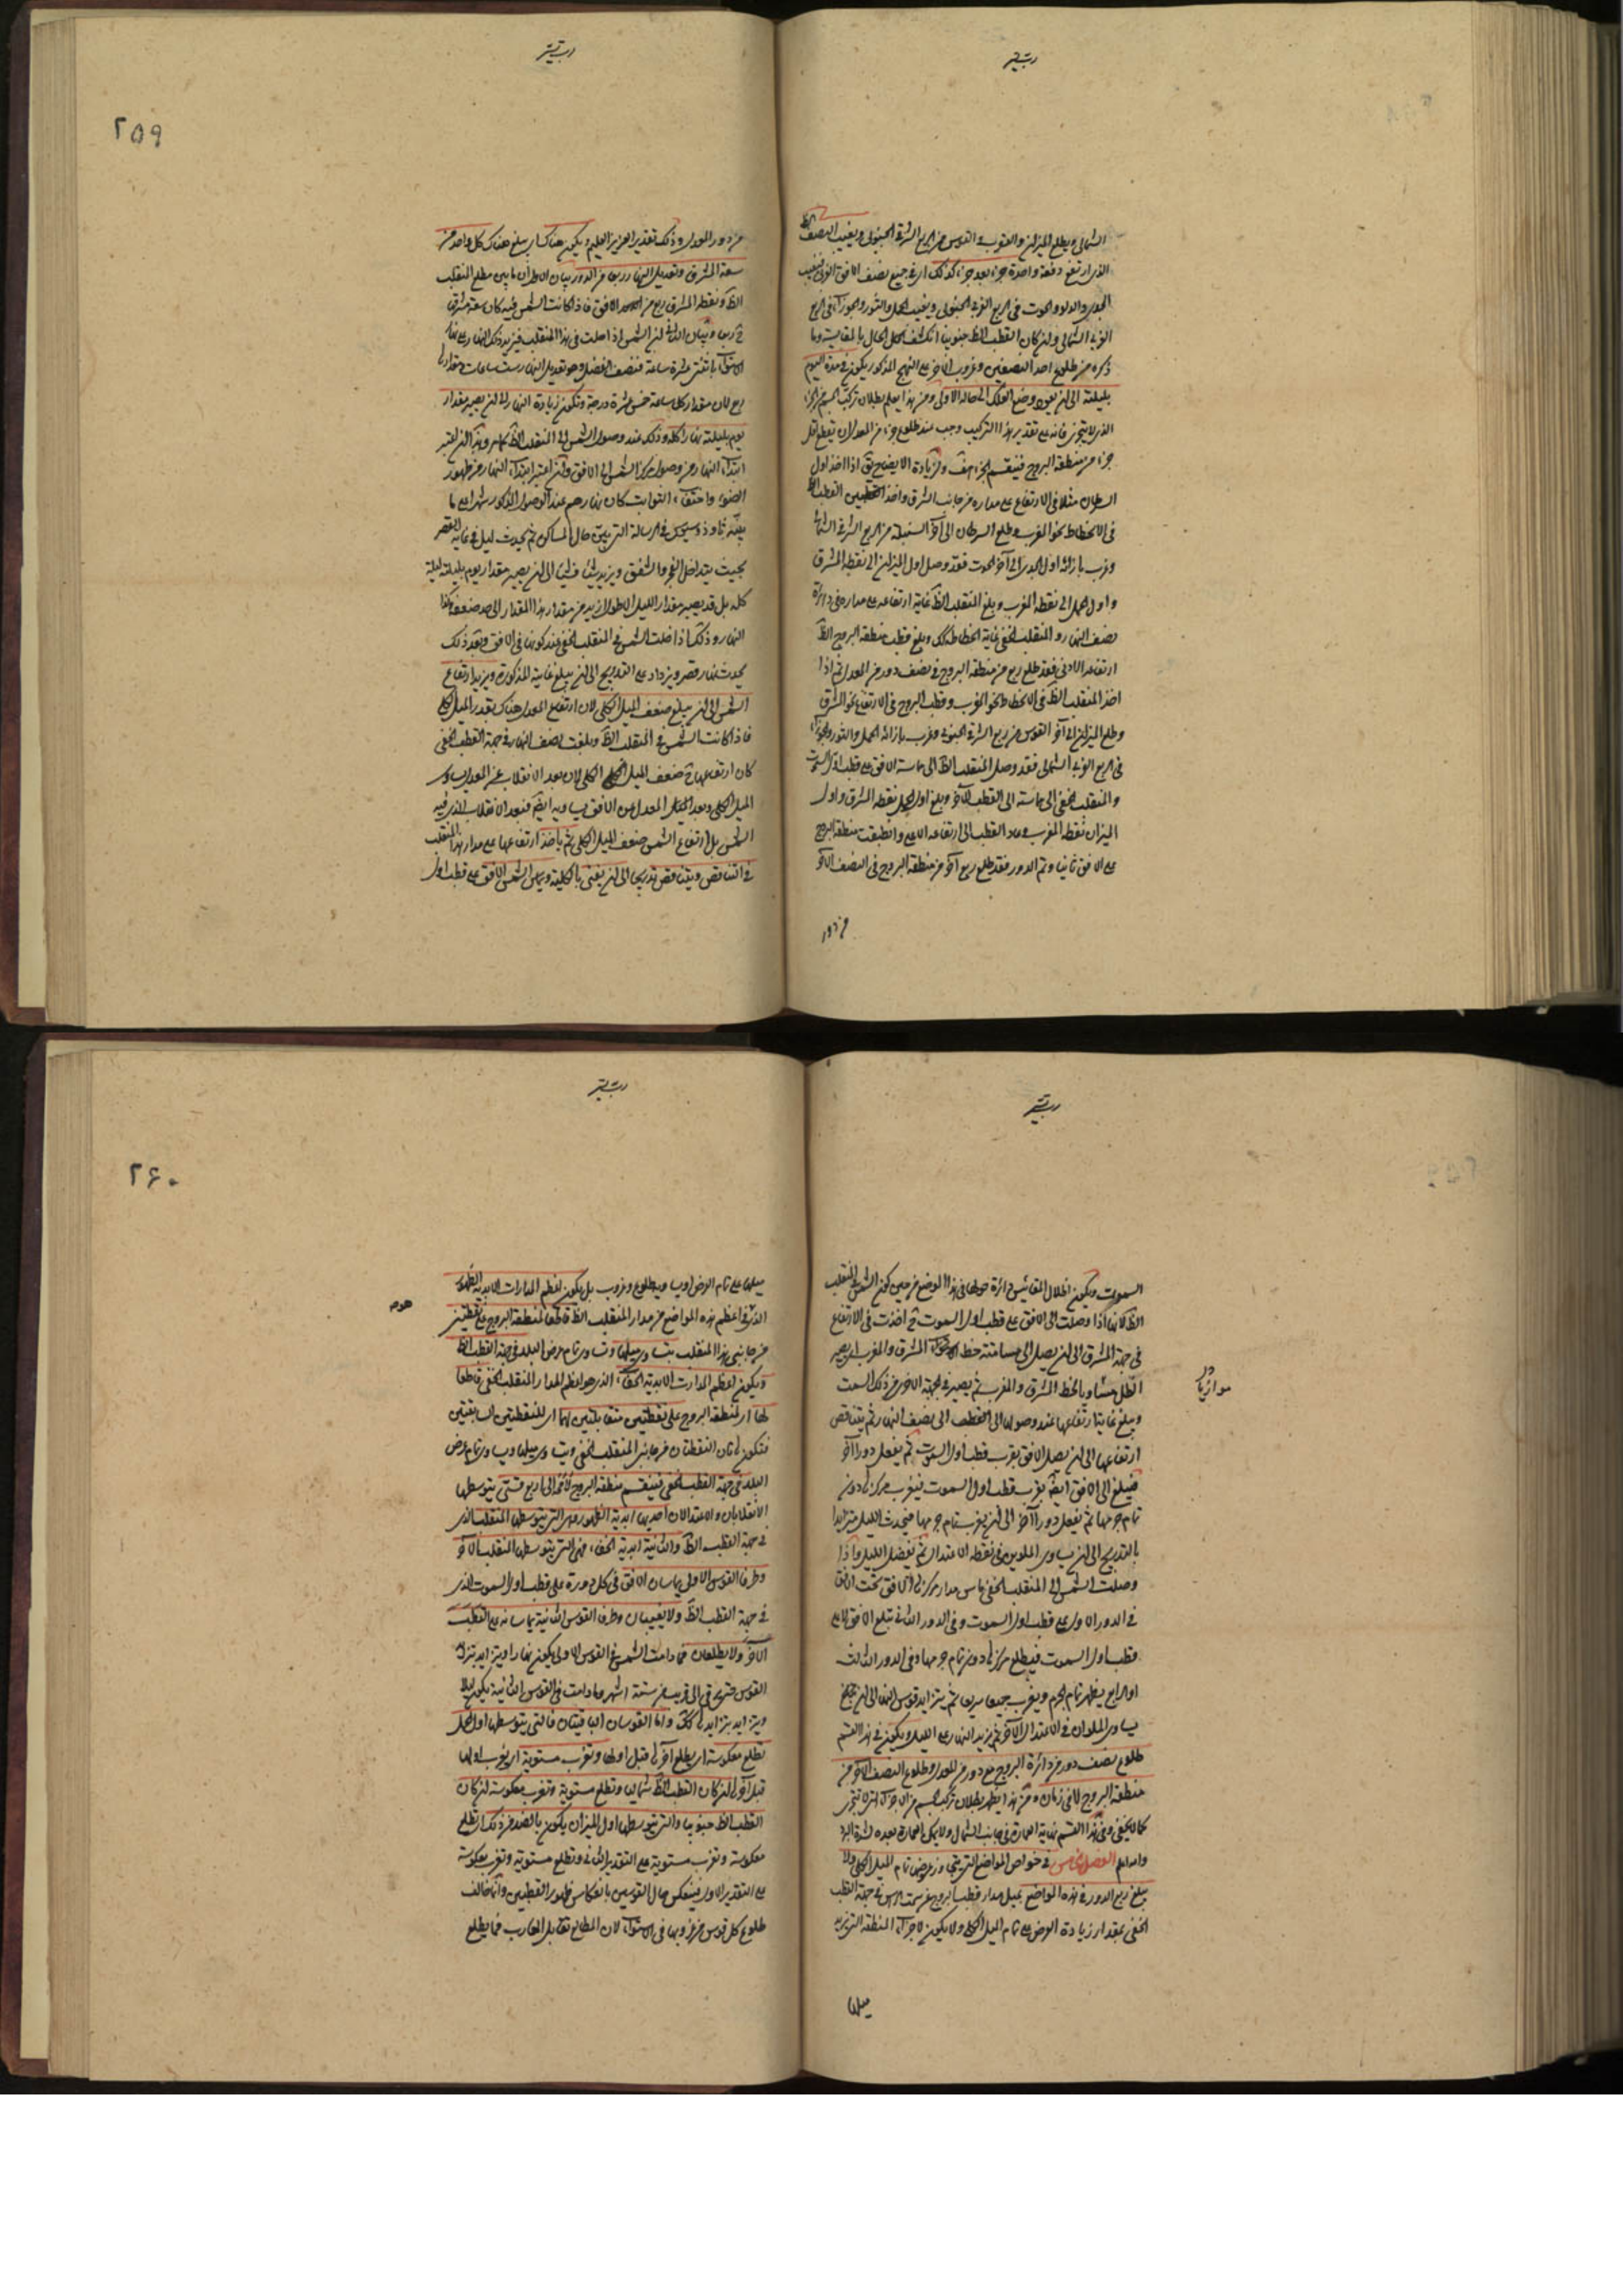 الشمالي ويطلع الميزان والعقرب والقوس من الربع الشرقي الجنوبي ويغيب النصف
الذي ارتفع دفعة واحدة جزء بعد جزء كذلك اي في جميع نصف الافق الغربي فيغيب
الجدي والدلو والحوت في الربع الغربي الجنوبي ويغيب الحمل والثور والجوزاء في الربع
الغربي الشمالي وان كان القطب الظ جنوبيا انكشف لك الحال بالمقايسة وما
ذكره من طلوع احد النصفين وغروب الاخر على النهج المذكور يكون في مدة اليوم
بليلته الى ان يعود وضع الفلك الى حاله الاولى ومن هذا يعلم بطلان تركب الجسم من اجزاء
الذي لا يتجزى فانه على تقدير هذا التركيب وجب عند طلوع جزء من المعدل ان يقطع اقل
جزء من منطقة البروج فينقسم الجزء هف ولزيادة الايضاح نق اذا اخذ اول
السرطان مثلا في الارتفاع على مداره من جانب الشرق واخذ القطب الظ
في الانحطاط نحو المغرب وطلع السرطان الى آخر السنبلة من الربع الشرقي الشمالي
وغرب بازائه اول الجدي الى آخر الحوت فقد وصل اول الميزان الى نقطة المشرق
واول الحمل الى نقطة المغرب وبلغ المنقلب الظ غاية ارتفاعه على مداره في دائرة
نصف النهار والمنقلب الخفي غاية انحطاطه كك وبلغ قطب منطقة البروج الظ
ارتفاعه الادنى فقد طلع ربع من منطقة البروج في نصف دور من المعدل ثم اذا
اخذ المنقلب الظ في الانحطاط نحو المغرب وقطب البروج في الارتفاع نحو المشرق
وطلع الميزان الى آخر القوس من ربع الشرقي الجنوبي وغرب بازائه الحمل والثور والجوزاء
في الربع الغربي الشمالي فقد وصل المنقلب الظ الى مماسة الافق على قطب اول السموت
والمنقلب الخفي الى مماسته الى القطب الآخر وبلغ اول الحمل نقطة المشرق واول
الميزان نقطة المغرب وعاد القطب الى ارتفاعه الاعلى وانطبقت منطقة البروج
على الافق ثانيا وتم الدور فقد طلع ربع آخر من منطقة البروج في النصف الآخر
من دور
٢٥٩
من دور المعدل وذلك تقدير العزيز العليم ويكون هناك اي يبلغ هناك كل واحد من
سعة المشرق وتعديل النهار ربعا من الدور بيان الاول ان ما بين مطلع المنقلب
الظ ونقطة المشرق ربع من الافق فاذا كانت الشمس فيه كان سعة مشرقها
ح ربعا وبيان الثاني ان الشمس اذا حلت في هذا المنقلب فيزيد ذلك النهار على نهار
الاستواء باثنتى عشرة ساعة فنصف الفضل وهو تعديل النهار ست ساعات ومقدارها
ربع لان مقدار كل ساعة خمس عشرة درجة وتكون زيادة النهار الى ان يصير مقدار
يوم بليلته نهارا كله وذلك عند وصول الشمس الى المنقلب الظ كما مر وهذا ان اعتبر
ابتداء النهار من وصول مركز الشمس الى الافق وان اعتبر ابتداء النهار من ظهور
الضوء واختفاء الثوابت كان نهارهم عند الوصول المذكور شهرا على ما
بينه ثاوذوسيوس في الرسالة التي بين حال المساكن ثم يحدث ليل في غاية القصر
بحيث يتداخل الفجر والشفق ويزيد شيئا فشيئا الى ان يصير مقدار يوم بليلته ليلة
كله بل قد يصير مقدار الليل الاطول ازيد من مقدار هذا المقدار الى حد ضعفه وكذا
النهار وذلك اذا حلت الشمس في المنقلب الخفي عند كونها في الافق وبعد ذلك
يحدث نهار قصير ويزداد على التدريج الى ان يبلغ غاية المذكورة ويزيد ارتفاع
الشمس الى ان يبلغ ضعف الميل الكلي لان ارتفاع المعدل هناك بقدر الميل الكلي
فاذا كانت الشمس في المنقلب الظ وبلغت نصف النهار في جهة القطب الخفي
كان ارتفاعها ح ضعف الميل الكلي لان بعد الانقلاب عن المعدل يساوي
الميل الكلي وبعد المعدل عن الافق يساويه ايضا فبعد الانقلاب الذي فيه
الشمس بل ارتفاع الشمس ضعف الميل الكلي ثم ياخذ ارتفاعها على مدار هذا المنقلب
في التناقص ويتناقص تدريجا الى ان يفنى بالكلية ويماس الشمس الافق على قطب اول
السموت ويكون اظلال المقائيس دائرة حولها في هذا الموضع من حين كون الشمس في المنقلب
الظ لانها اذا وصلت الى الافق على قطب اول السموت ثم اخذت في الارتفاع
في جهة المشرق الى ان يصل الى مسامتة خط المشرق والمغرب اي يصير
الظل مساويا لخط المشرق والمغرب ثم يصير في الجهة الاخرى من ذلك السمت
موازيا
ويبلغ غاية ارتفاعها عند وصولها الى نصف النهار ثم يتناقص
ارتفاعها الى ان يصل الافق بقرب قطب اول السموت ثم يفعل دورا آخر
فيبلغ الى الافق ايضا بقرب قطب اول السموت فيغرب مركزها دون
تمام جرمها ثم يفعل دورا آخر الى ان يغرب تمام جرمها فيحدث الليل متزايدا
بالتدريج الى ان يساوى الملوين في نقطة الاعتدال ثم يفضل الليل واذا
وصلت الشمس الى المنقلب الخفي ماس مدار مركزها الافق تحت الافق
في الدور الاول على قطب اول السموت وفي الدور الثاني تبلغ الافق لا على
قطب اول السموت فيطلع مركزها دون تمام جرمها وفي الدور الثالث
او الرابع يظهر تمام الجرم ويغرب جميعا سريعا ثم يتزايد قوس النهار الى ان يبلغ
يساوى الملوان في الاعتدال الآخر ثم يزيد النهار على الليل ويكون في هذا القسم
طلوع نصف دور من دائرة البروج مع دور من المعدل وطلوع النصف الآخر من
منطقة البروج لا في زمان ومن هذا يظهر بطلان تركب الجسم من الاجزاء التي لا تتجزى
كما لا يخفى وفي هذا القسم نهاية العمارة في جانب الشمال ولا يمكن العمارة بعده لشدة البرد
والله اعلم الفصل الخامس في خواص المواضع التي يتجاوز عرضها تمام الميل الكلي ولا
يبلغ ربع الدور في هذه المواضع يميل مدار قطب البروج عن سمت الراس في جهة القطب
الخفي بمقدار زيادة العرض على تمام الميل الكلي ولا يكون لاجزاء المنطقة التي يزيد
ميلها
٢٦٠
ميلها على تمام العرض او يساويه طلوع وغروب بل يكون اعظم المدارات الابدية الظهور
الذي في اعظم هذه المواضع من مدار المنقلب الظ قاطعا لمنطقة البروج على نقطتين
من جانبي هذا المنقلب يتساوى ميلهما ويساوي تمام عرض البلد في جهة القطب الظ
ويكون اعظم المدارات الابدية الخفاء الذي هو اعظم المدار المنقلب الخفي قاطعا
لها اي لمنطقة البروج على نقطتين متقابلتين لهما اي للنقطتين السابقتين
فتكون هاتان النقطتان من جانبي المنقلب الخفي ويتساوى ميلهما ويساوي تمام عرض
البلد في جهة القطب الخفي فينقسم منطقة البروج لا محالة الى اربع قسى يتوسطها
الانقلابان والاعتدالان احديها ابدية الظهور وهي التي يتوسطها المنقلب الذي
في جهة القطب الظ والثانية ابدية الخفاء وهي التي يتوسطها المنقلب الآخر
وطرفا القوس الاولى يماسان الافق في كل دورة على قطب اول السموت الذي
في جهة القطب الظ ولا يغيبان وطرفا القوس الثانية يماسانه على القطب
الآخر ولا يطلعان فما دامت الشمس في القوس الاولى يكون نهارا ويتزايد بتزايد
القوس حتى يرتقى الى قريب من ستة اشهر وما دامت في القوس الثانية يكون ليلا
ويتزايد بتزايدها كك واما القوسان الباقيتان فالتي يتوسطها اول الحمل
تطلع معكوسة اي يطلع آخرها قبل اولها وتغرب مستوية اي يغرب اولها
قبل آخرها ان كان القطب الظ شماليا وتطلع مستوية وتغرب معكوسة ان كان
القطب الظ جنوبيا والتي يتوسطها اول الميزان يكون بالضد من ذلك اي تطلع
معكوسة وتغرب مستوية على التقدير الثاني وتطلع مستوية وتغرب معكوسة
على التقدير الاول فينعكس حال القوسين بانعكاس ظهور القطبين وانما خالف
طلوع كل قوس غروبها في الاستواء لان المطالع تقابل المغارب فما يطلع